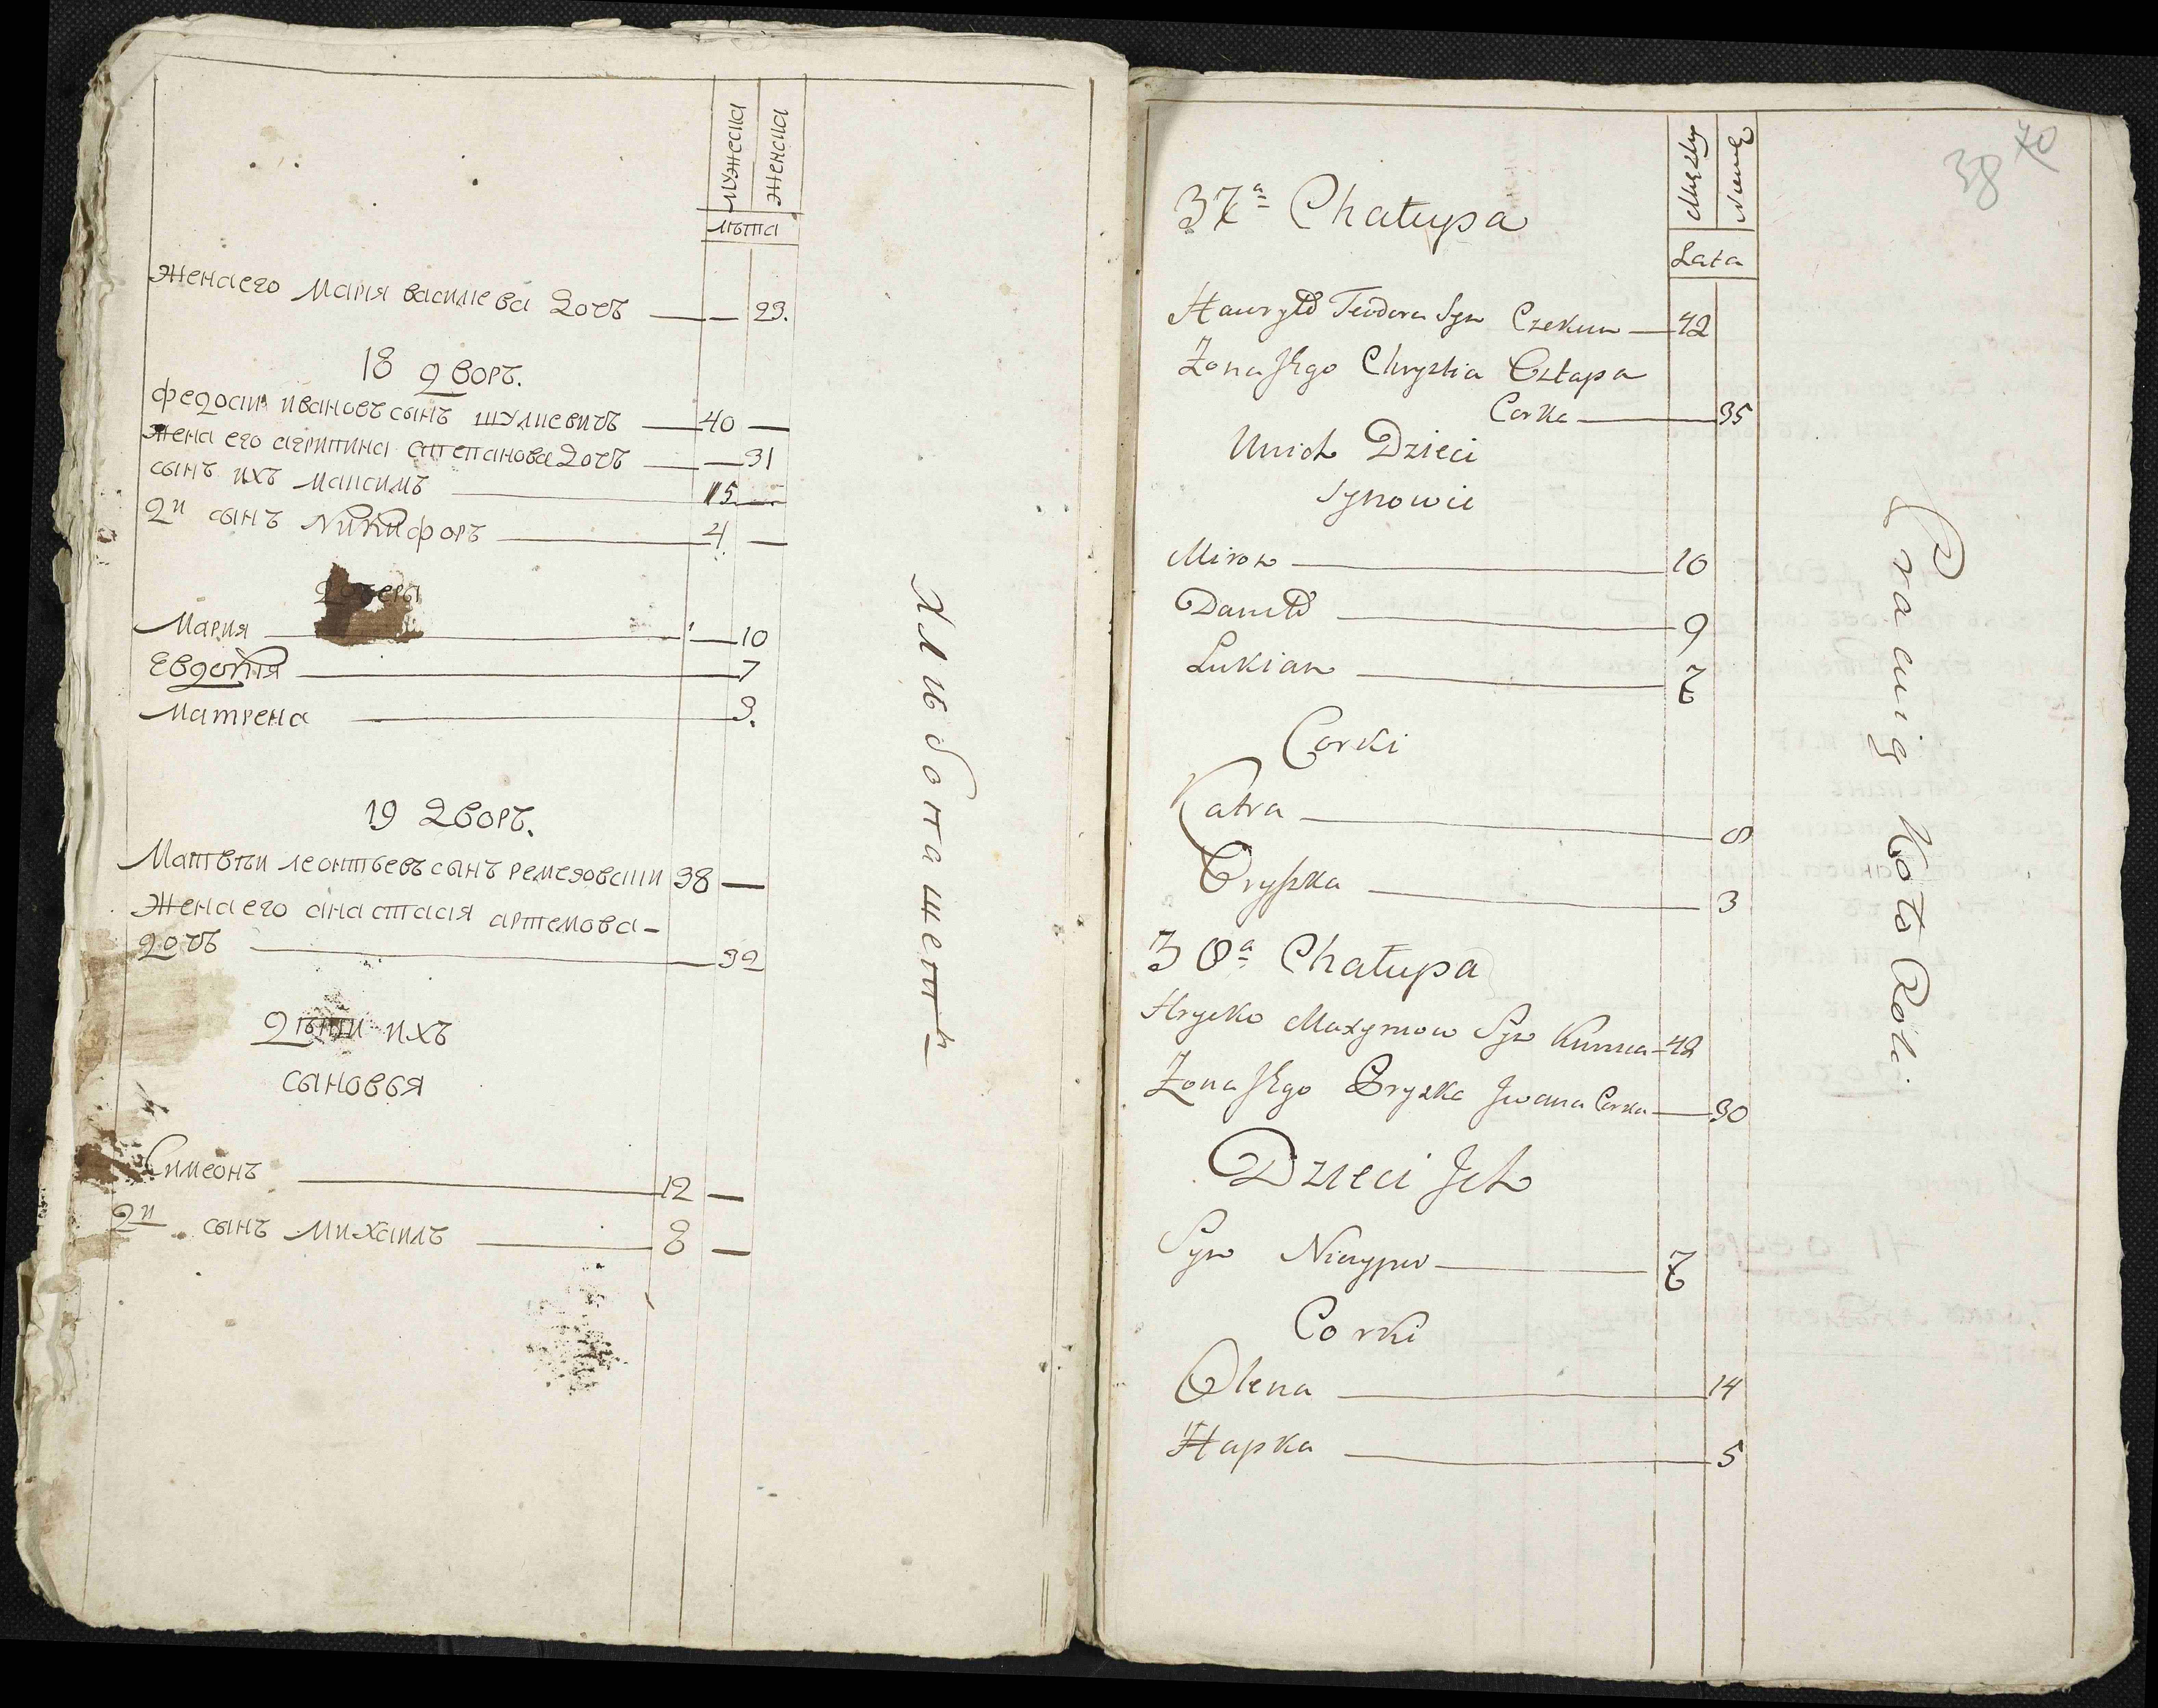 мужеска
женска
лѣта
жена его Марія василиева дочъ — — 23.
18 дворъ.
федосій ивановъ сынъ шулиевичъ — 40 —
жена его агрипина степановадочъ — — 31
сынъ ихъ максимъ — 15 —
2й сынъ Никифоръ — 4 —
дочеры
Мария — — 10
Евдокія — 7
матрена — 3.
19 дворъ.
Матвѣи леонтьевъ сынъ ремезовскии 38 —
жена его анастасія артемова-
дочъ — 32
дѣти ихъ
сыновья
Симеонъ — 12 —
2й сынъ михаилъ — 8 —
Хлибопашетъ
38 70
Męzkey
Lata
37ª Chałupa
Hawryło Teodora Syn Czekun — 42
Żona Jego Chrystia Ostapa
Corka — 35
Unich Dzieci
Synowie
Miron — 10
Daniło — 9
Lukian — 7
Corki
Katra — 8
Oryszka — 3
38ª Chałupa
Hryćko Maxymow Syn — 42
Żona Jego Oryszka Jwana Corka — 30
Dzieci Jch
Syn Niczypor — 7
Corki
Olena — 14
Hapka — 5
Pracuią Koło Roli